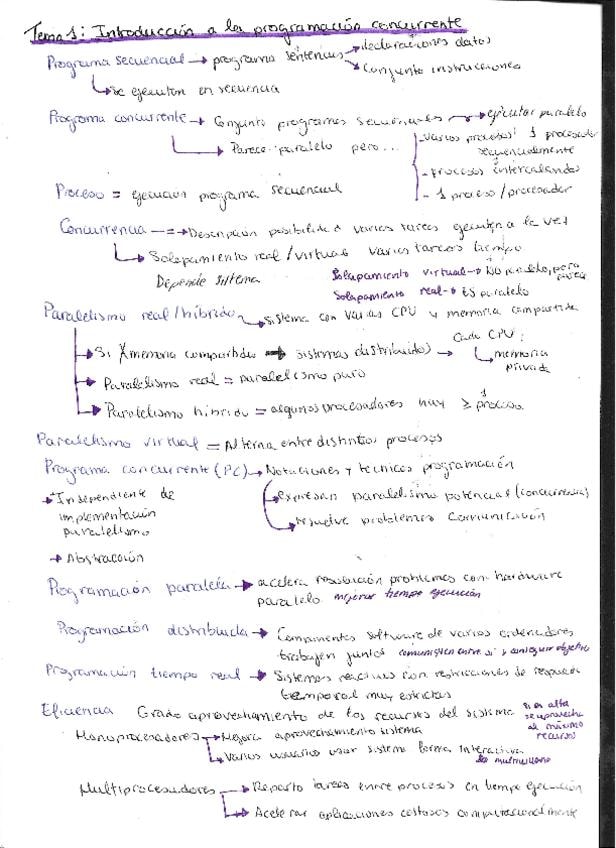 Tema 1: Introducción a la programación concurrente
Programa secuencial → programa sentencias → declaraciones datos
→ Conjunto instrucciones
→ Se ejecutan en secuencia
Programa concurrente → Conjunto programas secuenciales → ejecutar paralelo
→ Parece paralelo pero... - varios procesos 1 procesador
secuencialmente
- procesos intercalando
- 1 proceso/procesador
Proceso = ejecucion programa secuencial
Concurrencia → = → Descripcion posibilidad varias tareas ejecuten a la vez
→ Solapamiento real/virtual varias tareas tiempo
Depende sistema Solapamiento virtual → No paralelo, pero
Solapamiento real → Es paralelo
Paralelismo real/híbrido → sistema con varias CPU y memoria compartida
→ Si memoria compartida → sistemas distribuidos → Cada CPU:
→ memoria
privada
→ Paralelismo real = paralelismo puro
→ Paralelismo hibrido = algunos procesadores hay ≥ 1 proceso
Paralelismo virtual = Alterna entre distintos procesos
Programa concurrente (PC) → Notaciones y tecnicas programación
→ expresan paralelismo potencial (concurrencia)
→ resuelve problemas comunicación
→ Independiente de
implementación
paralelismo
→ Abstracción
Programación paralela → acelera resolución problemas con hardware
paralelo mejorar tiempo ejecución
Programación distribuida → Componentes software de varios ordenadores
trabajen juntos comuniquen entre si y conseguir objetivo
Programación tiempo real → Sistemas reactivos con restricciones de respuesta
temporal muy estrictas
Eficiencia Grado aprovechamiento de los recursos del sistema si es alta
se aprovecha
al máximo
recursos
Monoprocesadores → Mejora aprovechamiento sistema
→ Varios usuarios usar sistema forma interactiva
Multiprocesadores → Reparto tareas entre procesos en tiempo ejecución
→ Acelerar aplicaciones costosas computacionalmente